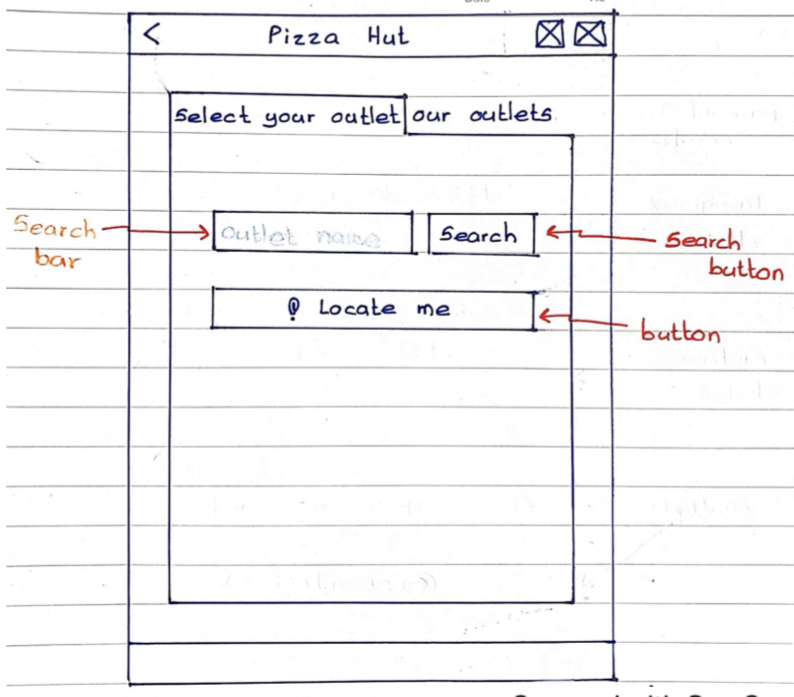 <
Pizza Hut
Select your outlet
our outlets
Search bar
outlet name
Search
Search button
Locate me
button